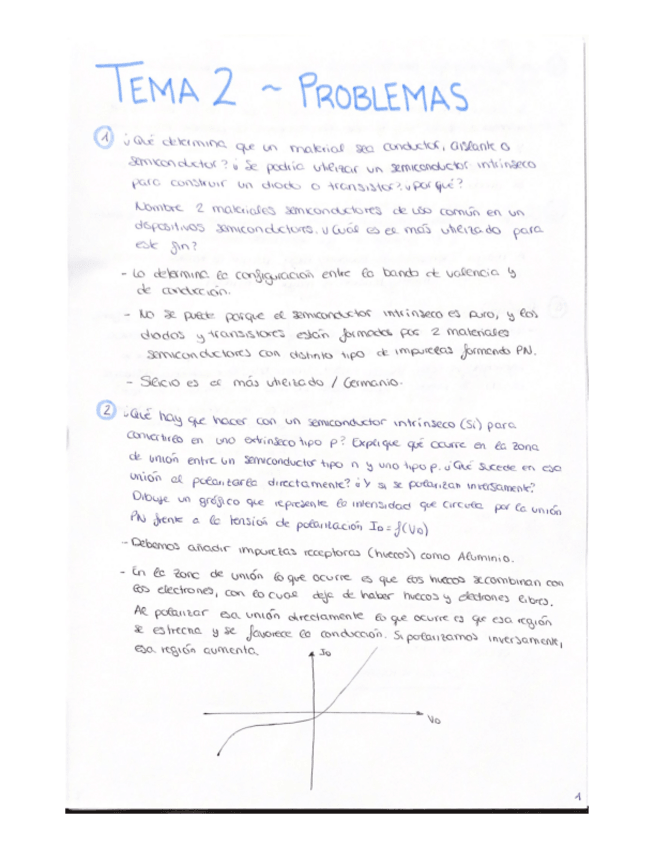 TEMA 2 ~ PROBLEMAS
1 ¿Qué determina que un material sea conductor, aislante o
semiconductor? ¿Se podría utilizar un semiconductor intrínseco
para construir un diodo o transistor? ¿por qué?
Nombre 2 materiales semiconductores de uso común en un
dispositivos semiconductores. ¿Cuál es el más utilizado para
este fin?
- Lo determina la configuración entre la banda de valencia y
de conducción.
- No se puede porque el semiconductor intrínseco es puro, y los
diodos y transistores están formados por 2 materiales
semiconductores con distinto tipo de impurezas formando PN.
- Silicio es el más utilizado / Germanio.
2 ¿Qué hay que hacer con un semiconductor intrínseco (Si) para
convertirlo en uno extrínseco tipo p? Explique qué ocurre en la zona
de unión entre un semiconductor tipo n y uno tipo p. ¿Qué sucede en esa
unión al polarizarla directamente? ¿Y si se polarizan inversamente?
Dibuje un gráfico que represente la intensidad que circula por la unión
PN frente a la tensión de polarización ID = f(VD)
- Debemos añadir impurezas receptoras (huecos) como Aluminio.
- En la zona de unión lo que ocurre es que los huecos recombinan con
los electrones, con lo cual deja de haber huecos y electrones libres.
Al polarizar esa unión directamente lo que ocurre es que esa región
se estrecha y se favorece la conducción. Si polarizamos inversamente,
esa región aumenta.
ID
VD
1